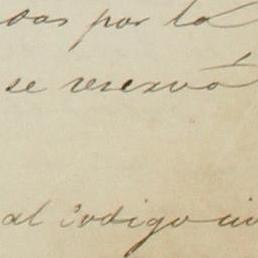 das por la
se reservó
al Codigo ci